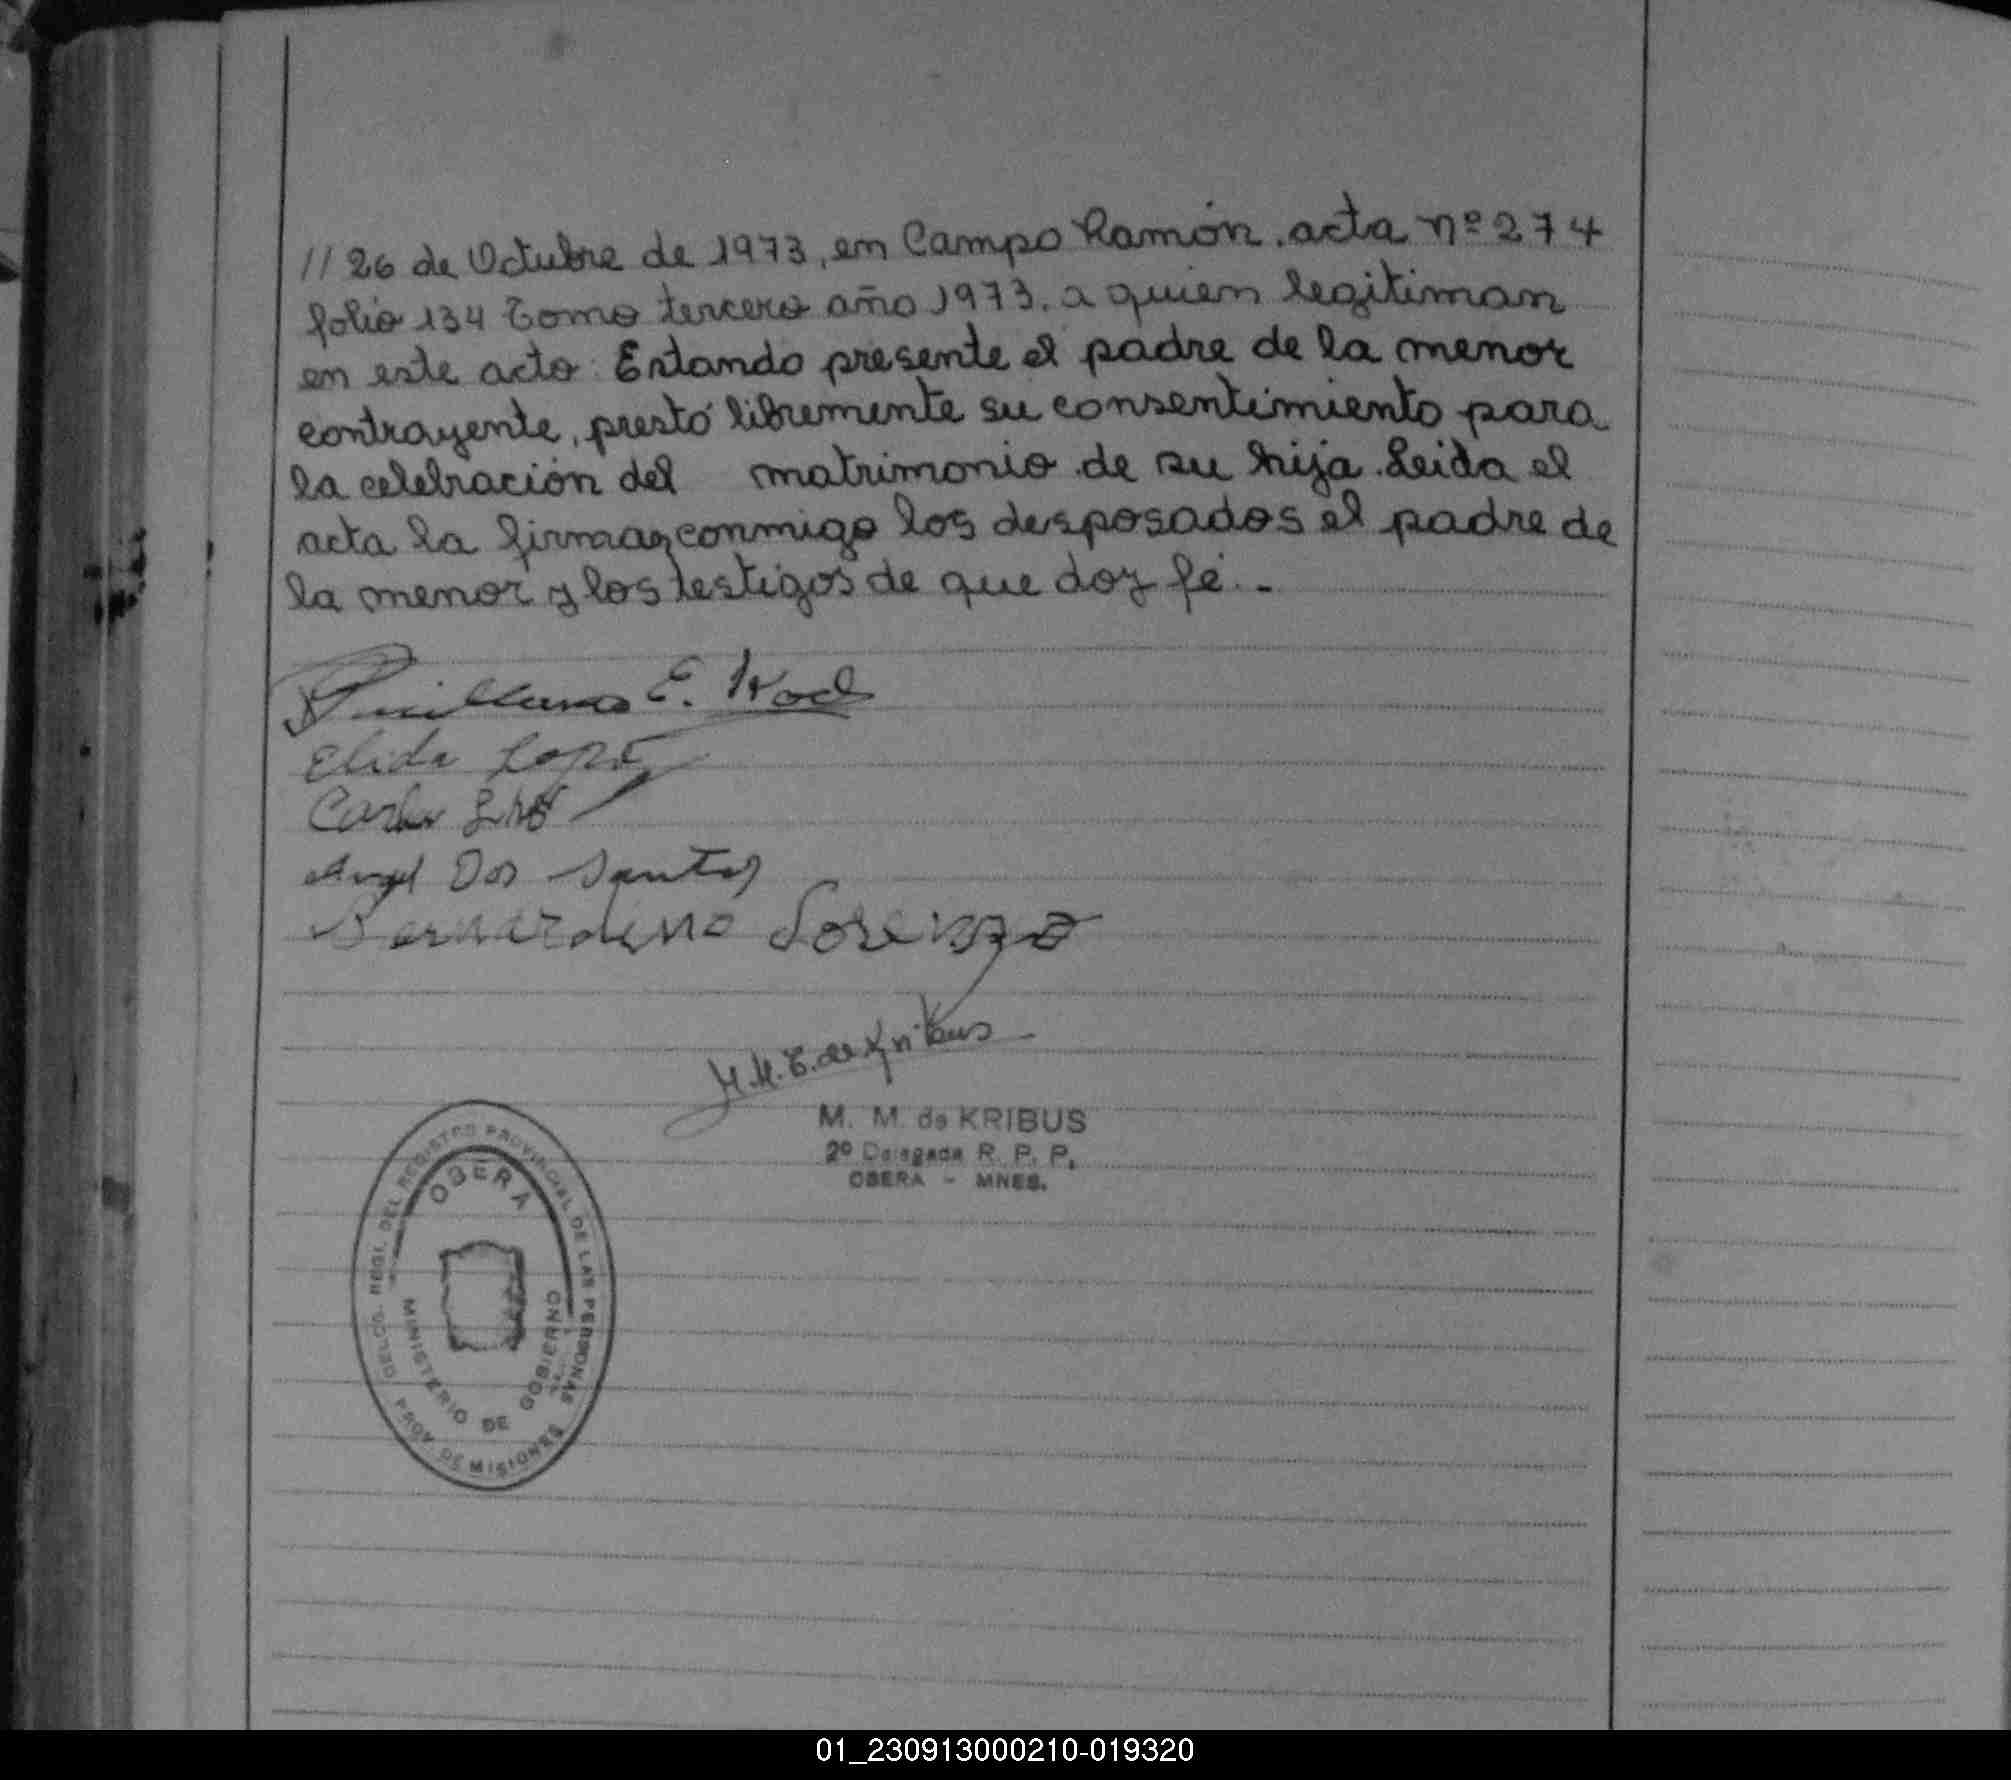 // 26 de Octubre de 1973, en Campo Ramón. acta nº 274
folio 134 Tomo tercero año 1973. a quien legitiman
en este acto. Estando presente el padre de la menor
contrayente, prestó libremente su consentimiento para
la celebración del matrimonio de su hija. Leida el
acta la firman conmigo los desposados el padre de
la menor y los testigos de que doy fé. -
Guillermo E.
Elida
Angel Dos Santos
Bernardino Lorenzo
de Kribus
M. M. de KRIBUS
2º Delegada R. P. P.
OBERA - MNES.
DEL REGISTRO PROVINCIAL DE LAS PERSONAS
OBERA
MINISTERIO DE GOBIERNO
PROV. DE MISIONES
01_230913000210-019320